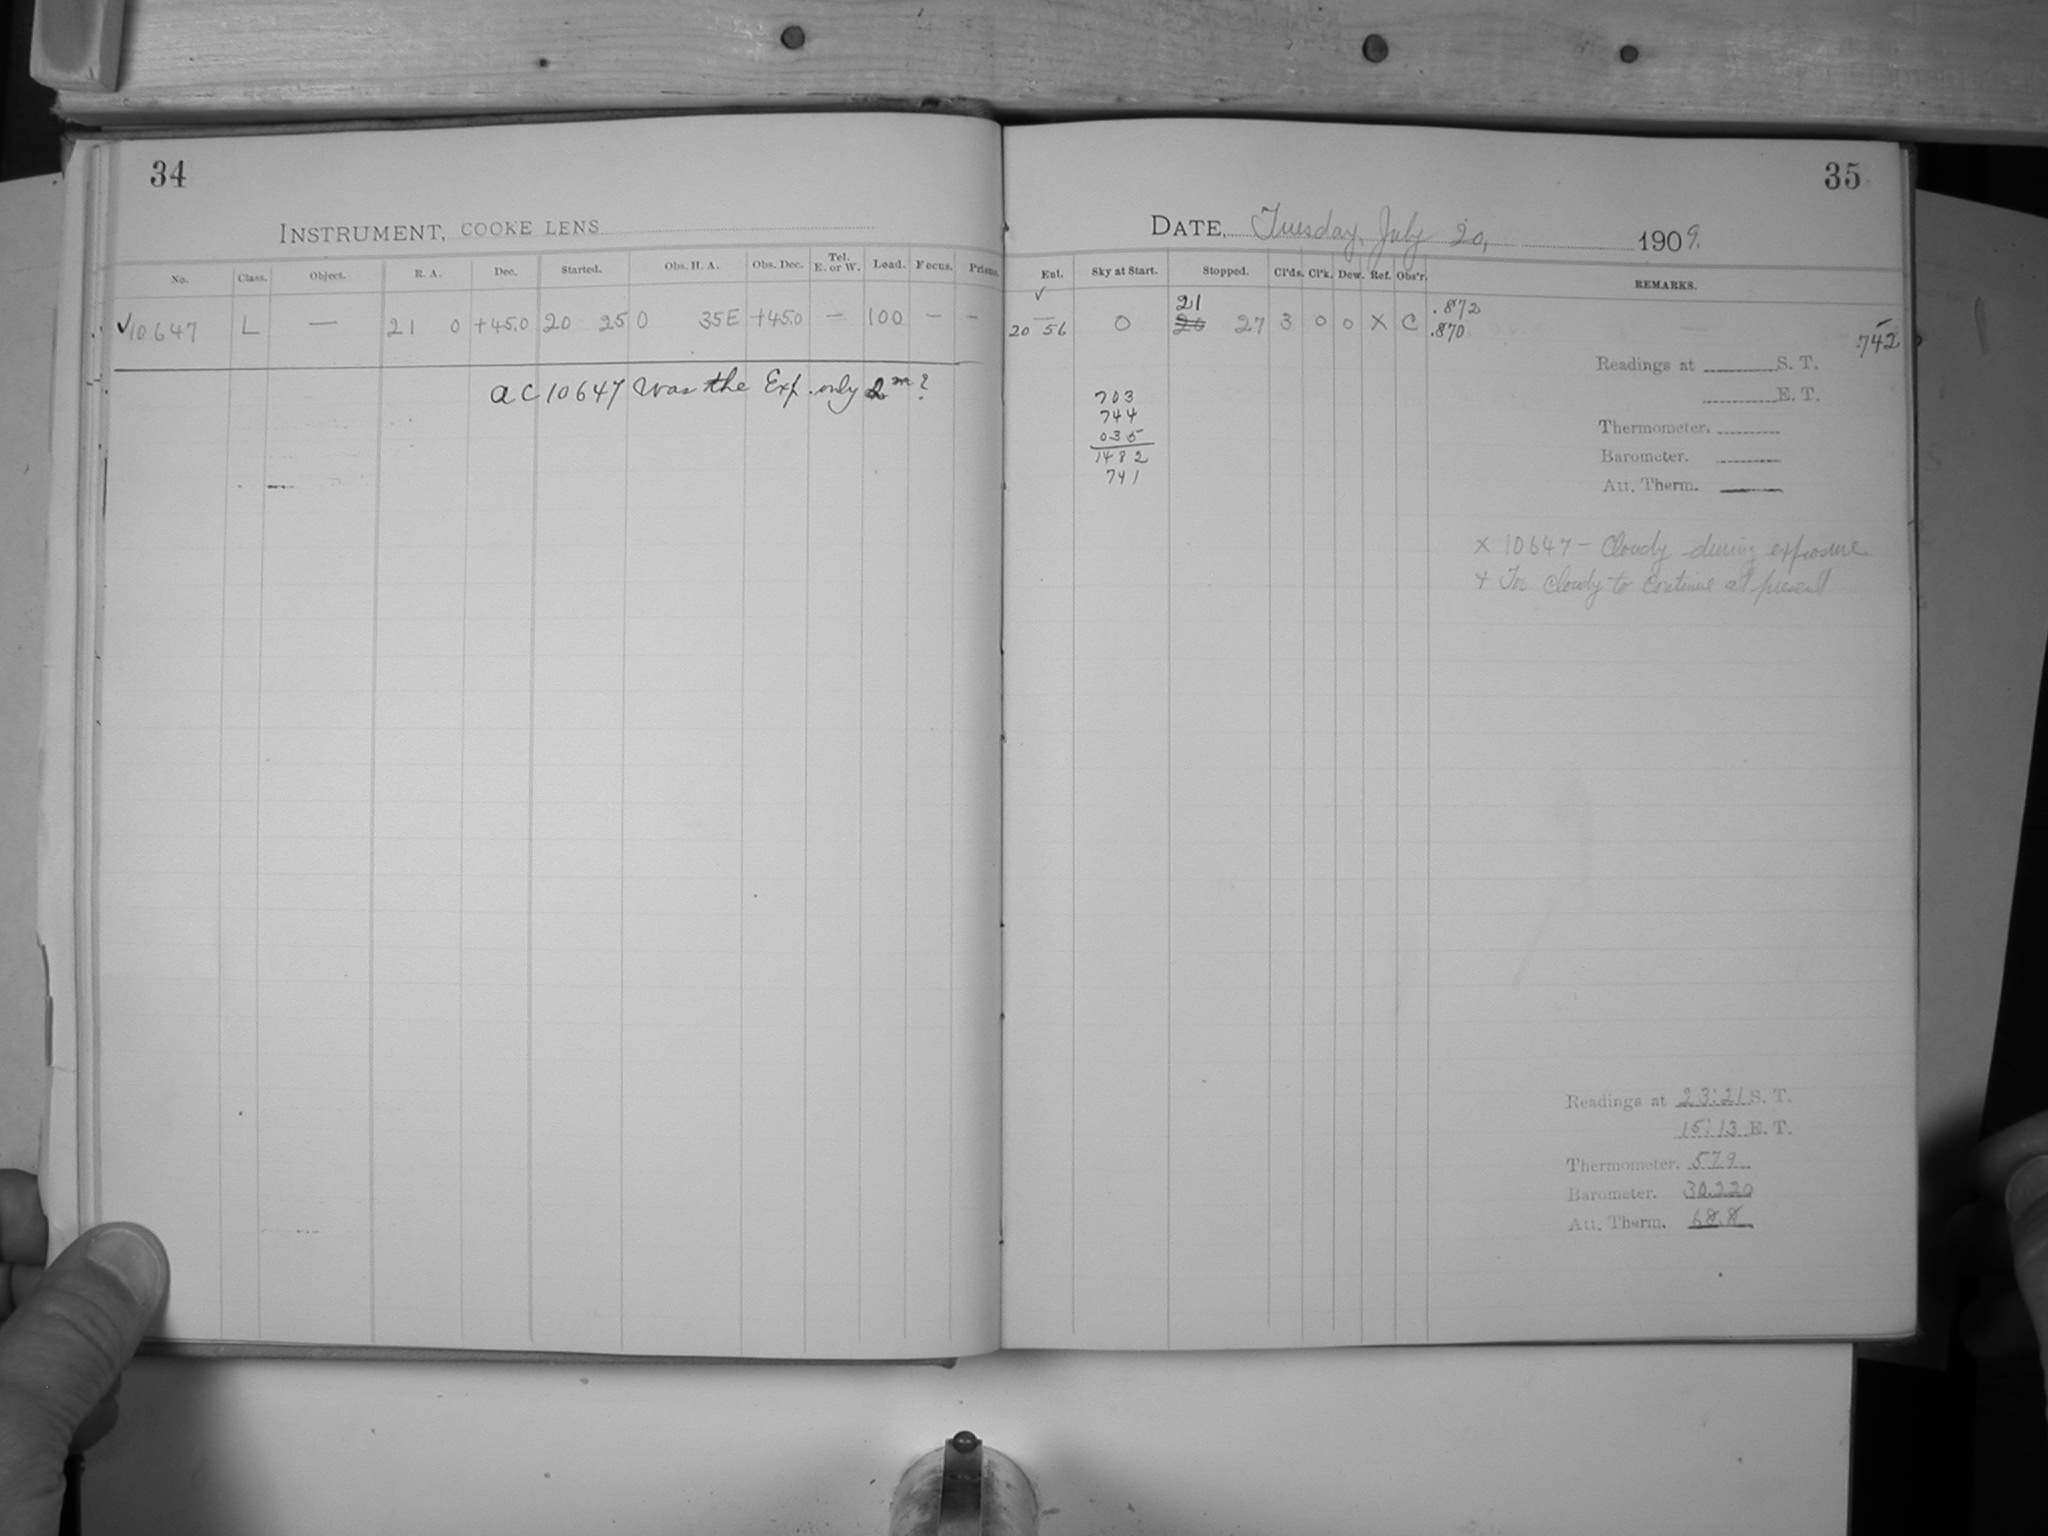 34
INSTRUMENT, COOKE LENS
No. Class. Object. R. A. Dec. Started. Obs. H. A. Obs. Dec. Tel. E. or W. Load. Focus. Prisms.
✓10647 L — 21 0 +45.0 20 25 0 35E +45.0 — 100 — —
AC 10647 Was the Exp. only 2m?
35
DATE, Tuesday, July 20, 1909.
Ent. Sky at Start. Stopped. Cl'ds. Cl'k. Dew. Ref. Obs'r. REMARKS.
✓
21 .872
20 56 0 20 27 3 0 0 X C .870
.742
Readings at S. T.
E. T.
Thermometer.
Barometer.
Att. Therm.
703
744
035
1482
741
X 10647 - Cloudy during exposure
+ Too cloudy to continue at present
Readings at 23:21 S. T.
15:13 E. T.
Thermometer. 57.9
Barometer. 30.220
Att. Therm. 68.8